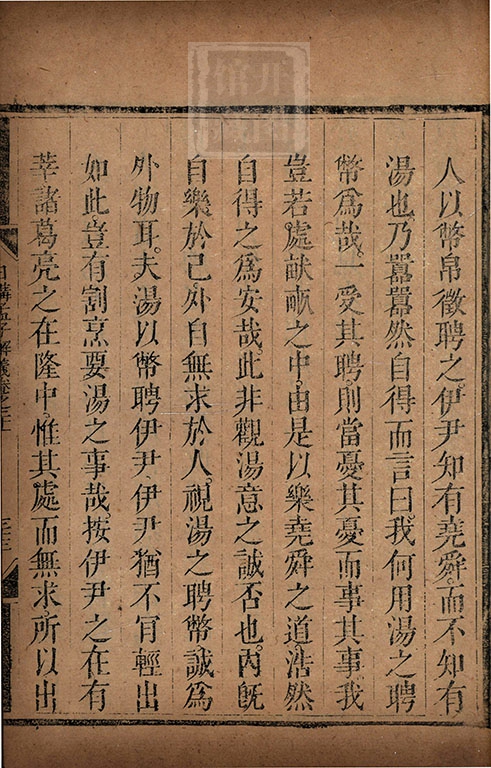 人以幣帛徵聘之伊尹知有堯舜而不知有
湯也乃囂囂然自得而言曰我何用湯之聘
幣爲哉一受其聘則當憂其憂而事其事我
豈若處畎畝之中由是以樂堯舜之道浩然
自得之爲安哉此非觀湯意之誠否也內旣
自樂於己外自無求於人視湯之聘幣誠爲
外物耳夫湯以幣聘伊尹伊尹猶不肎輕出
如此豈有割烹要湯之事哉按伊尹之在有
莘諸葛亮之在隆中惟其處而無求所以出
日講孟子解義卷之三上
三三